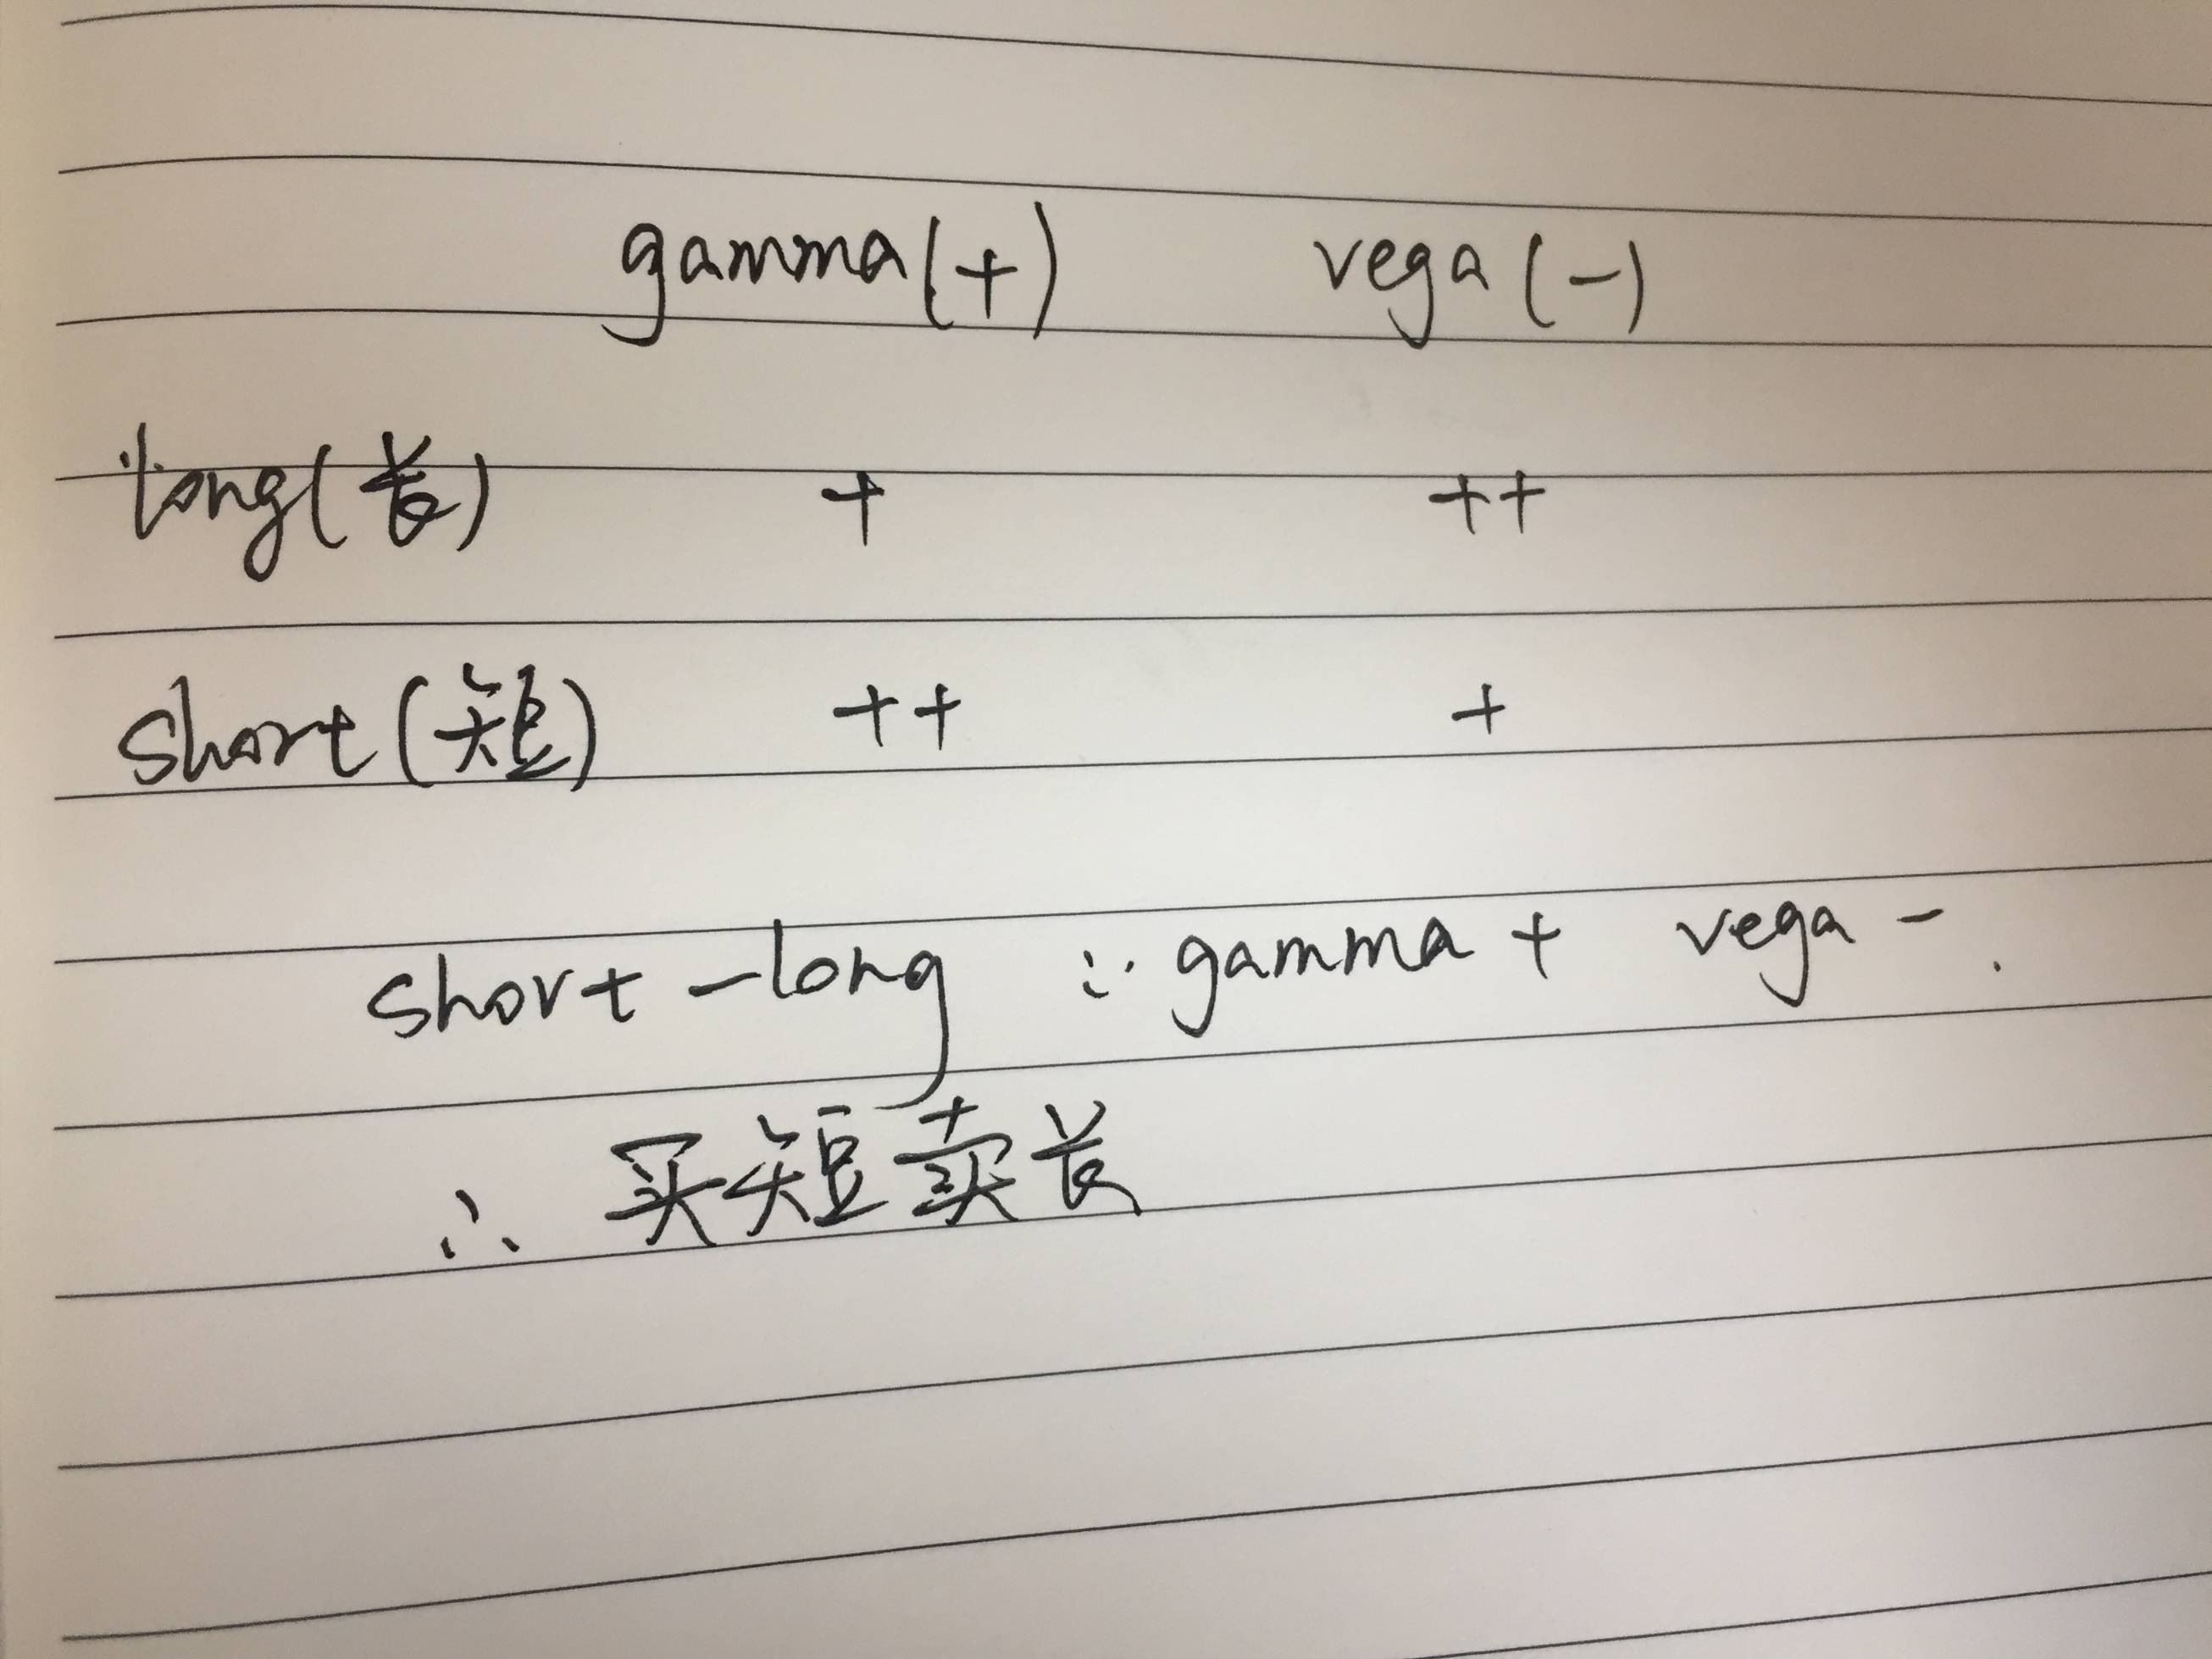 gamma(+) vega(-)
long(长) + ++
short(短) ++ +
short-long ∵ gamma + vega - .
∴ 买短卖长